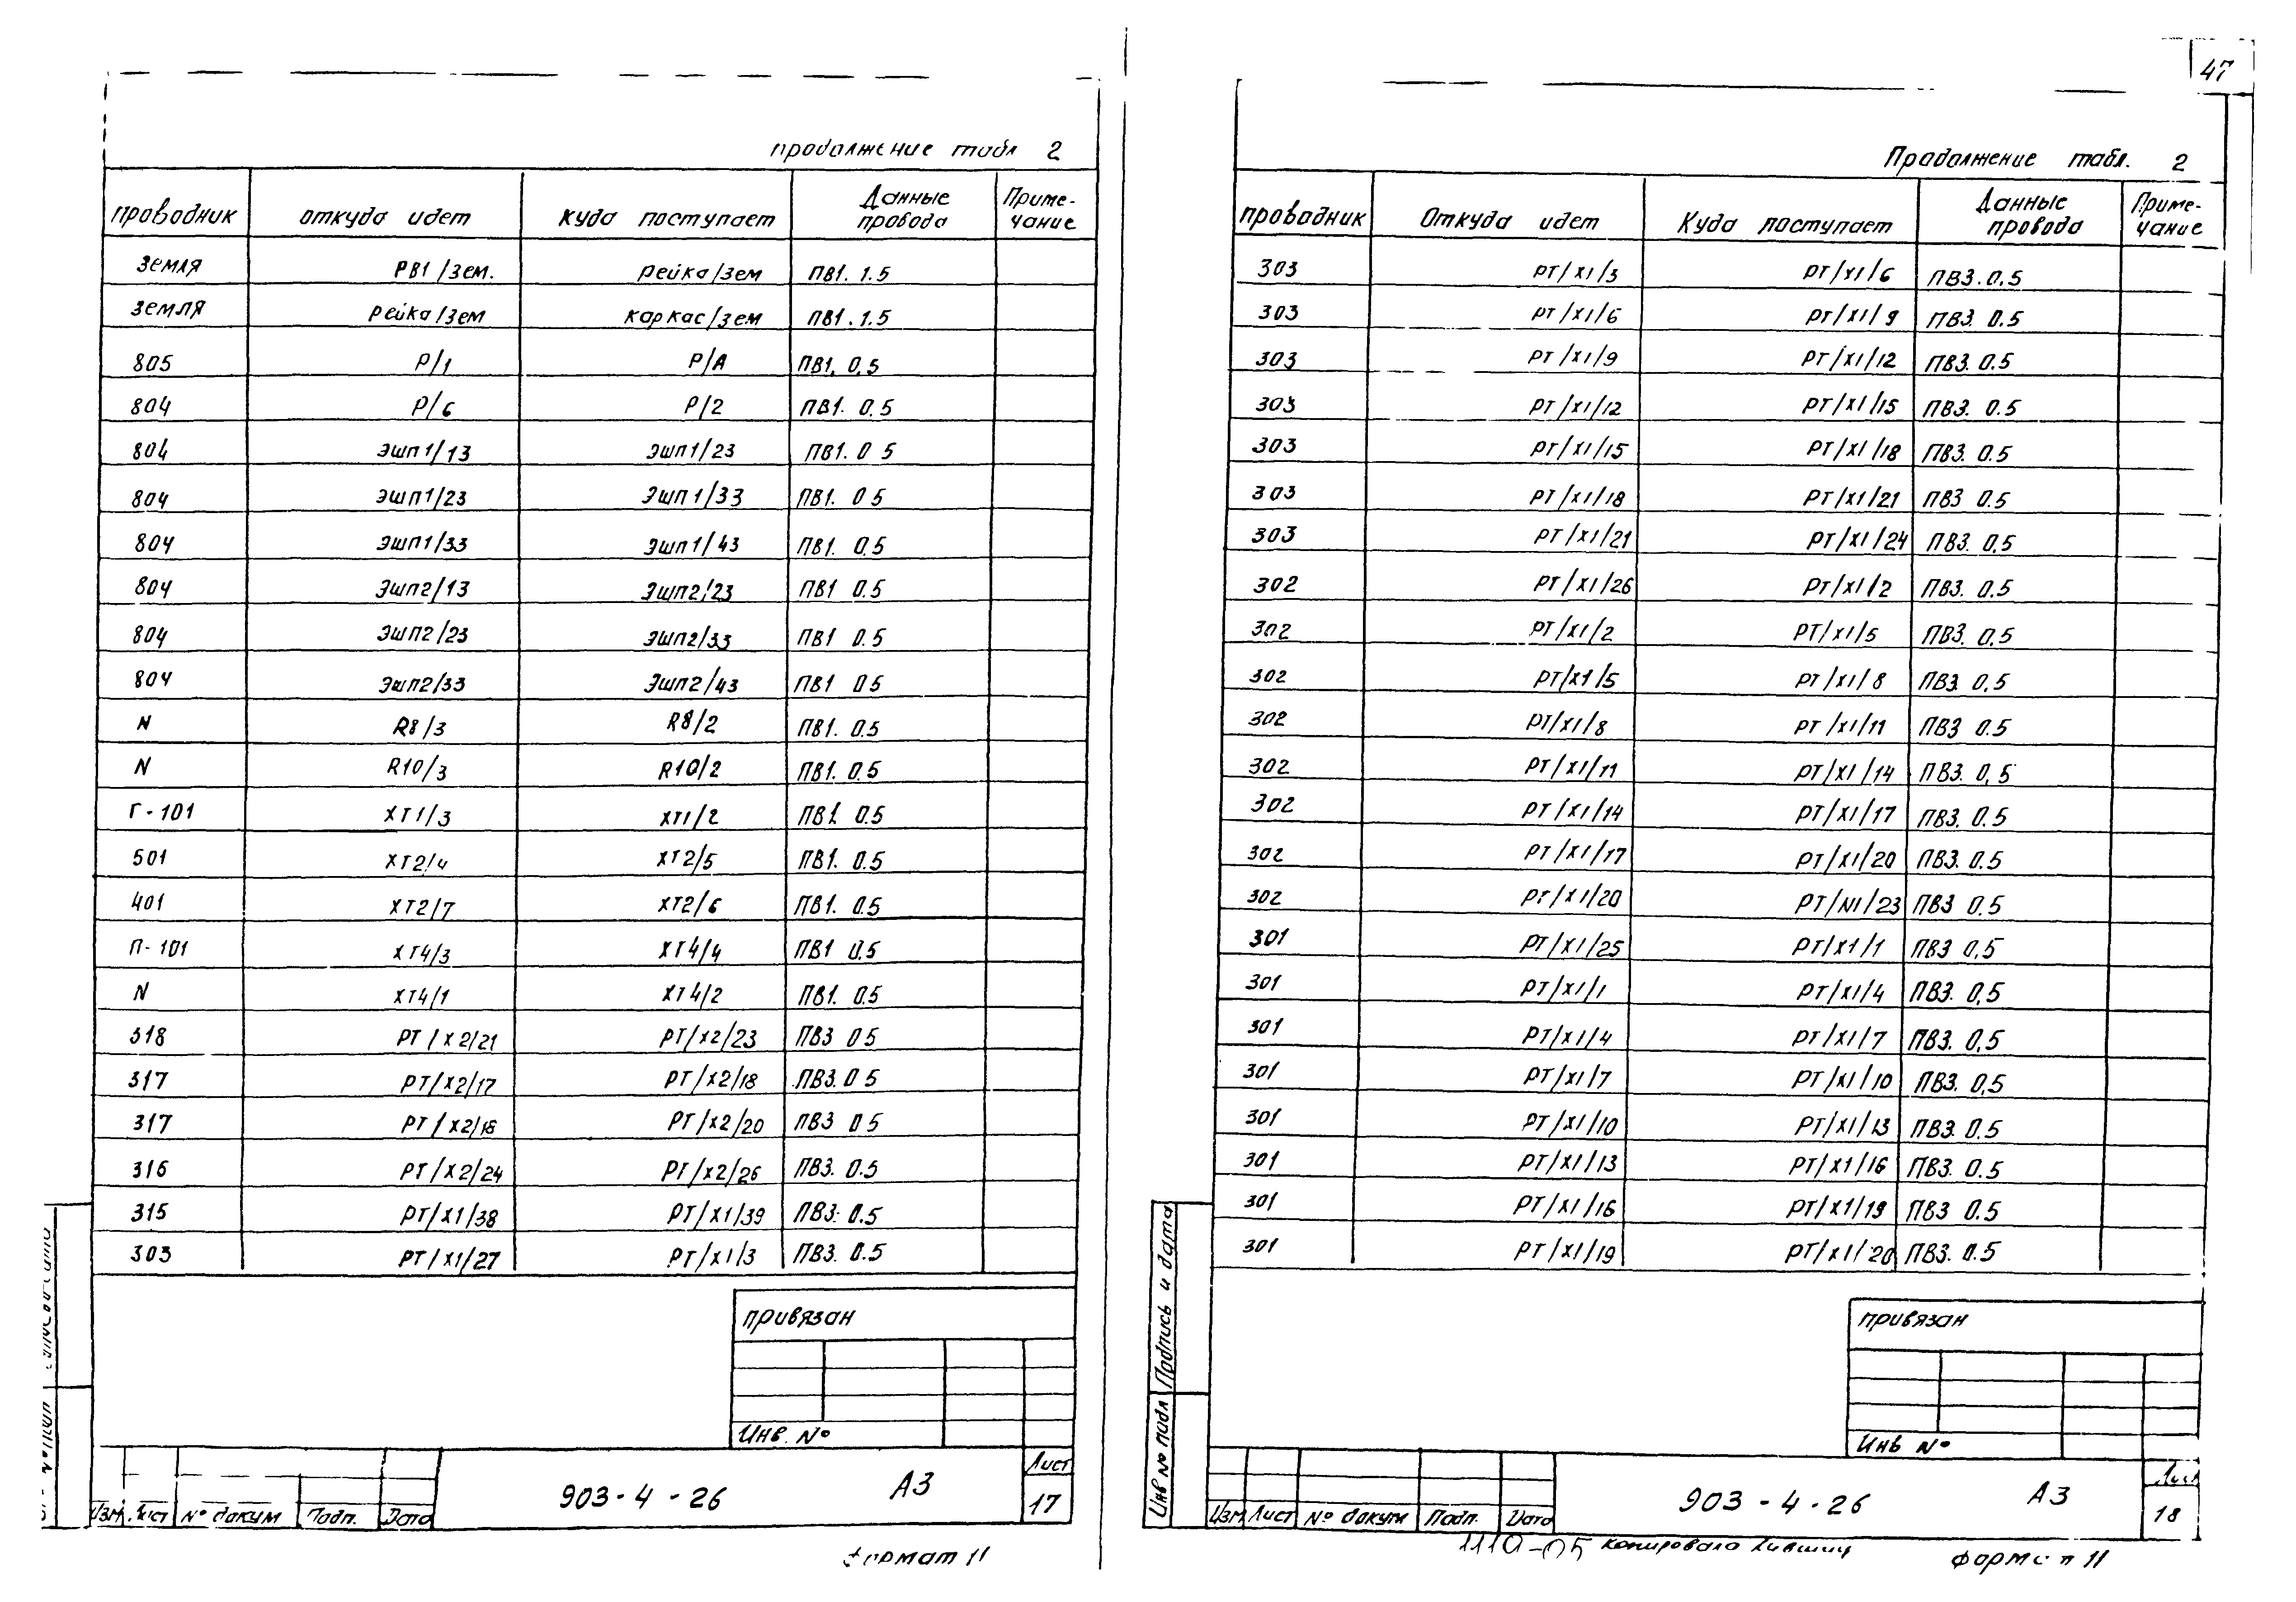 47
продолжение табл 2
проводник откуда идет куда поступает Данные провода Приме-чание
земля РВ1/зем. рейка/зем ПВ1. 1.5
земля рейка/зем каркас/зем ПВ1. 1.5
805 Р/1 Р/А ПВ1. 0,5
804 Р/6 Р/2 ПВ1. 0.5
804 ЭШП1/13 ЭШП1/23 ПВ1. 0 5
804 ЭШП1/23 ЭШП1/33 ПВ1. 0 5
804 ЭШП1/33 ЭШП1/43 ПВ1. 0.5
804 ЭШП2/13 ЭШП2/23 ПВ1 0.5
804 ЭШП2/23 ЭШП2/33 ПВ1 0.5
804 ЭШП2/33 ЭШП2/43 ПВ1 0 5
N R8/3 R8/2 ПВ1. 0.5
N R10/3 R10/2 ПВ1. 0.5
Г-101 ХТ1/3 ХТ1/2 ПВ1. 0.5
501 ХТ2/4 ХТ2/5 ПВ1. 0.5
401 ХТ2/7 ХТ2/6 ПВ1. 0.5
П-101 ХТ4/3 ХТ4/4 ПВ1 0.5
N ХТ4/1 ХТ4/2 ПВ1. 0.5
318 РТ/Х2/21 РТ/Х2/23 ПВ3 0 5
317 РТ/Х2/17 РТ/Х2/18 ПВ3. 0 5
317 РТ/Х2/18 РТ/Х2/20 ПВ3 0 5
316 РТ/Х2/24 РТ/Х2/26 ПВ3. 0.5
315 РТ/Х1/38 РТ/Х1/39 ПВ3. 0.5
303 РТ/Х1/27 РТ/Х1/3 ПВ3. 0.5
привязан
Инв. №
Изм Лист № докум Подп. Дата
903-4-26 А3
Лист
17
Формат 11
Продолжение табл. 2
проводник Откуда идет Куда поступает Данные провода Приме-чание
303 РТ/Х1/3 РТ/Х1/6 ПВ3. 0.5
303 РТ/Х1/6 РТ/Х1/9 ПВ3. 0.5
303 РТ/Х1/9 РТ/Х1/12 ПВ3. 0.5
303 РТ/Х1/12 РТ/Х1/15 ПВ3. 0.5
303 РТ/Х1/15 РТ/Х1/18 ПВ3. 0.5
303 РТ/Х1/18 РТ/Х1/21 ПВ3 0.5
303 РТ/Х1/21 РТ/Х1/24 ПВ3. 0,5
302 РТ/Х1/26 РТ/Х1/2 ПВ3. 0.5
302 РТ/Х1/2 РТ/Х1/5 ПВ3. 0,5
302 РТ/Х1/5 РТ/Х1/8 ПВ3 0,5
302 РТ/Х1/8 РТ/Х1/11 ПВ3 0.5
302 РТ/Х1/11 РТ/Х1/14 ПВ3. 0,5
302 РТ/Х1/14 РТ/Х1/17 ПВ3. 0.5
302 РТ/Х1/17 РТ/Х1/20 ПВ3. 0.5
302 РТ/Х1/20 РТ/N1/23 ПВ3 0.5
301 РТ/Х1/25 РТ/Х1/1 ПВ3 0,5
301 РТ/Х1/1 РТ/Х1/4 ПВ3. 0,5
301 РТ/Х1/4 РТ/Х1/7 ПВ3. 0,5
301 РТ/Х1/7 РТ/Х1/10 ПВ3. 0,5
301 РТ/Х1/10 РТ/Х1/13 ПВ3. 0.5
301 РТ/Х1/13 РТ/Х1/16 ПВ3. 0.5
301 РТ/Х1/16 РТ/Х1/19 ПВ3 0.5
301 РТ/Х1/19 РТ/Х1/20 ПВ3. 0.5
привязан
Инв №
Инв № подл Подпись и дата
Изм Лист № докум Подп. Дата
903-4-26 А3
Лист
18
1110-05 копировала
Формат 11